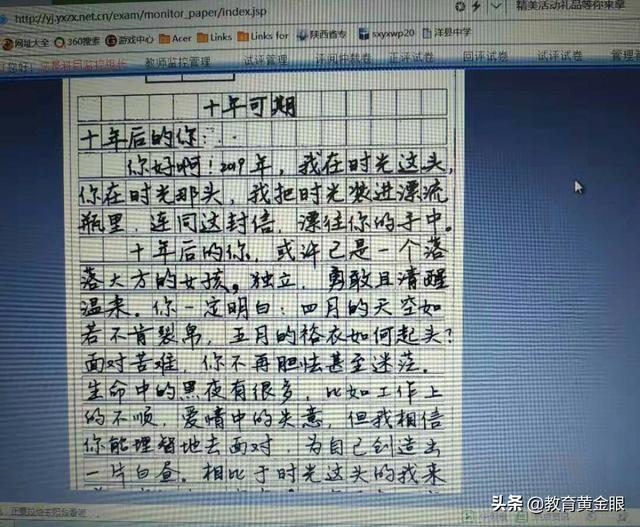 http://yj.yxzx.net.cn/exam/monitor_paper/index.jsp
精美活动礼品等你来拿
网址大全 360搜索 游戏中心 Acer Links Links for 陕西省专 sxyxwp20 洋县中学
教师监控管理 试评管理 评阅仲裁卷 正评试卷 回评试卷 试评试卷 管理
十年可期
十年后的你：
你好啊！2019年，我在时光这头，
你在时光那头，我把时光装进漂流
瓶里，连同这封信，漂往你的手中。
十年后的你，或许已是一个落
落大方的女孩。独立，勇敢且清醒
温柔。你一定明白：四月的天空如
若不肯裂帛，五月的袷衣如何起头？
面对苦难，你不再胆怯甚至迷茫。
生命中的黑夜有很多，比如工作上
的不顺，爱情中的失意，但我相信
你能理智地去面对，为自己创造出
一片白昼。相比于时光这头的我来
头条 @教育黄金眼